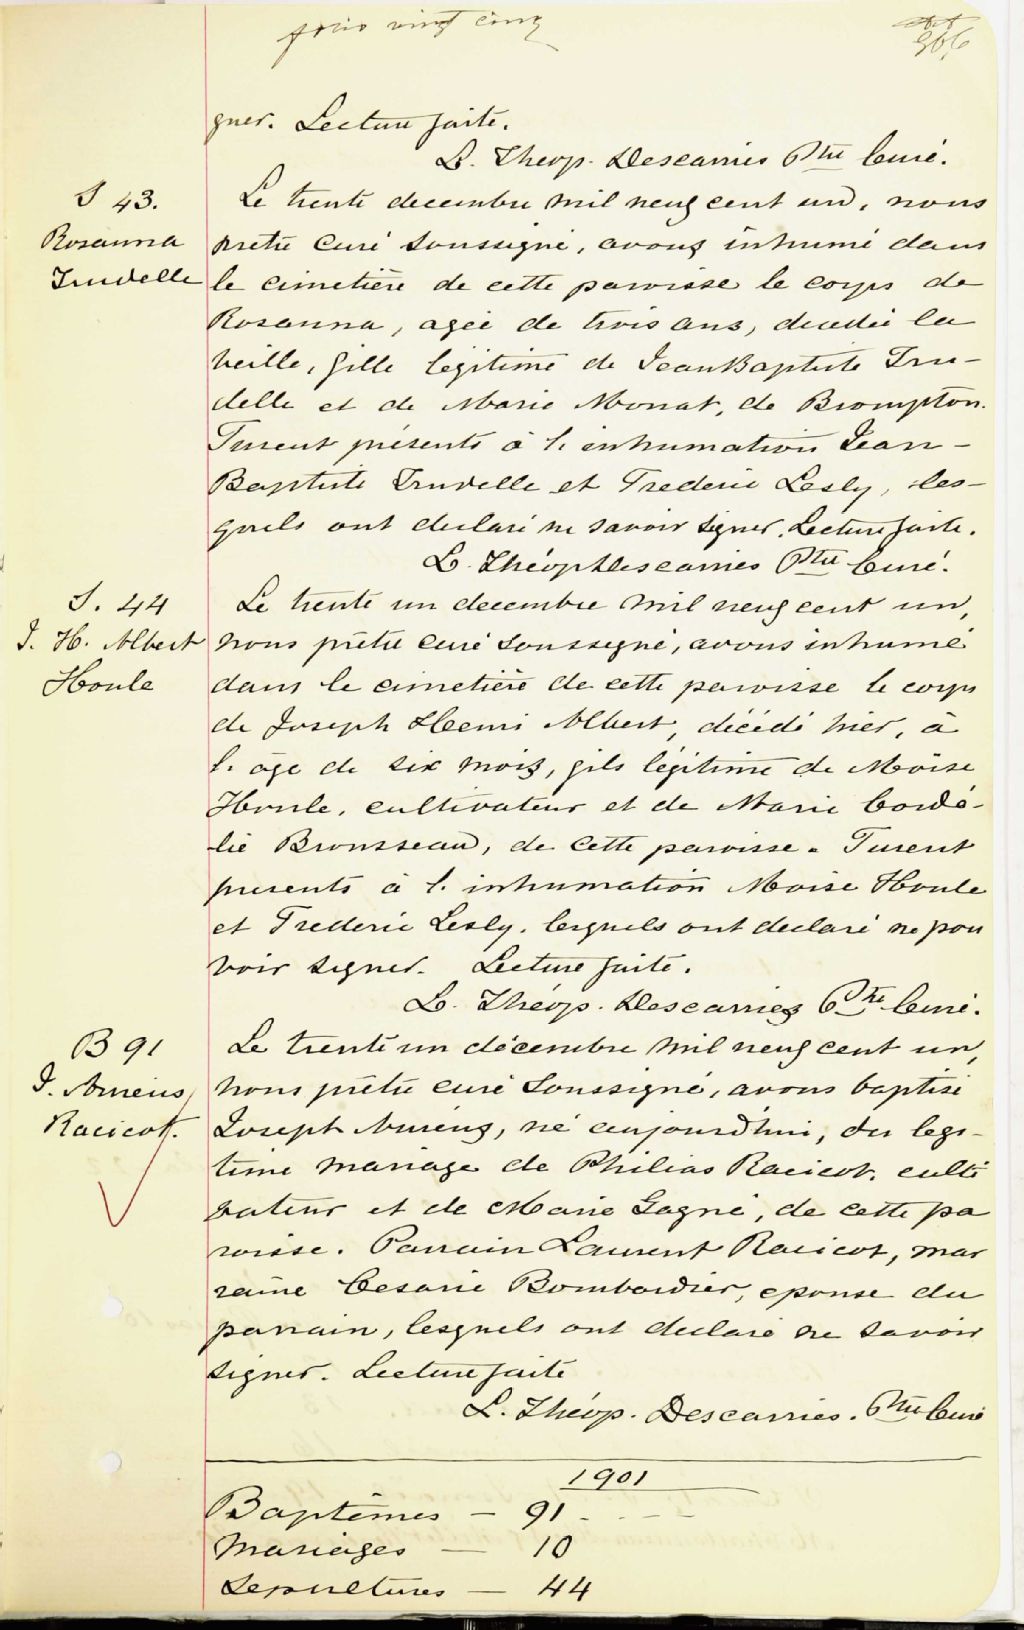 folio vingt cinq
gner. Lecture faite.
L. Théop. Descarries Ptre Curé.
S 43.
Rosanna
Trudelle
Le trente decembre mil neuf cent un, nous
pretre Curé soussigné, avons inhumé dans
le cimetière de cette paroisse le corps de
Rosanna, agée de trois ans, decedée la
veille, fille legitime de Jean Baptiste Tru-
delle et de Marie Monat, de Brompton.
Furent présents à l'inhumation Jean-
Baptiste Trudelle et Frederic Lesly, les-
quels ont declaré ne savoir signer. Lecture faite.
L. Théop Descarries Ptre Curé.
S. 44
J. H. Albert
Houle
Le trente un decembre mil neuf cent un,
nous prêtre curé soussigné, avons inhumé
dans le cimetière de cette paroisse le corps
de Joseph Henri Albert, décédé hier, à
l'âge de six mois, fils légitime de Moïse
Houle, cultivateur et de Marie Cordé-
lie Brousseau, de cette paroisse. Furent
presents à l'inhumation Moise Houle
et Frederic Lesly, lesquels ont declaré ne pou
voir signer. Lecture faite.
L. Théop. Descarries Ptre Curé.
B 91
J. Ameus
Racicot.
Le trente un décembre mil neuf cent un,
nous prêtre curé soussigné, avons baptisé
Joseph né aujourd'hui, du legi-
time mariage de Philias Racicot, culti
vateur et de Marie Gagné, de cette pa
roisse. Parrain Laurent Racicot, mar
raine Cesarie Bombardier, epouse du
parrain, lesquels ont declaré ne savoir
signer. Lecture faite
L. Théop. Descarries. Ptre Curé
1901
Baptêmes — 91
Mariages — 10
Sepultures — 44